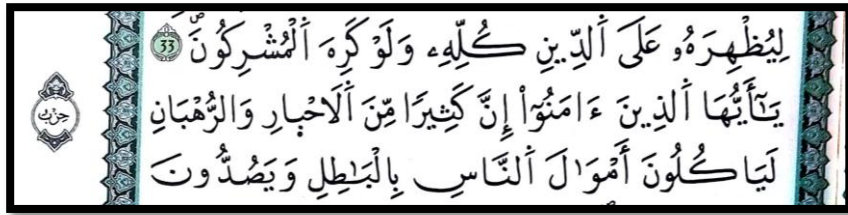 لِيُظْهِرَهُۥ عَلَى اَ۬لدِّينِ كُلِّهِۦ وَلَوْ كَرِهَ اَ۬لْمُشْرِكُونَۖ 33
يَٰٓأَيُّهَا اَ۬لذِينَ ءَامَنُوٓاْ إِنَّ كَثِيرٗا مِّنَ اَ۬لَاحْبِارِ وَالرُّهْبَانِ
لَيَاكُلُونَ أَمْوَٰلَ اَ۬لنَّاسِ بِالْبَٰطِلِ وَيَصُدُّونَ
حزب